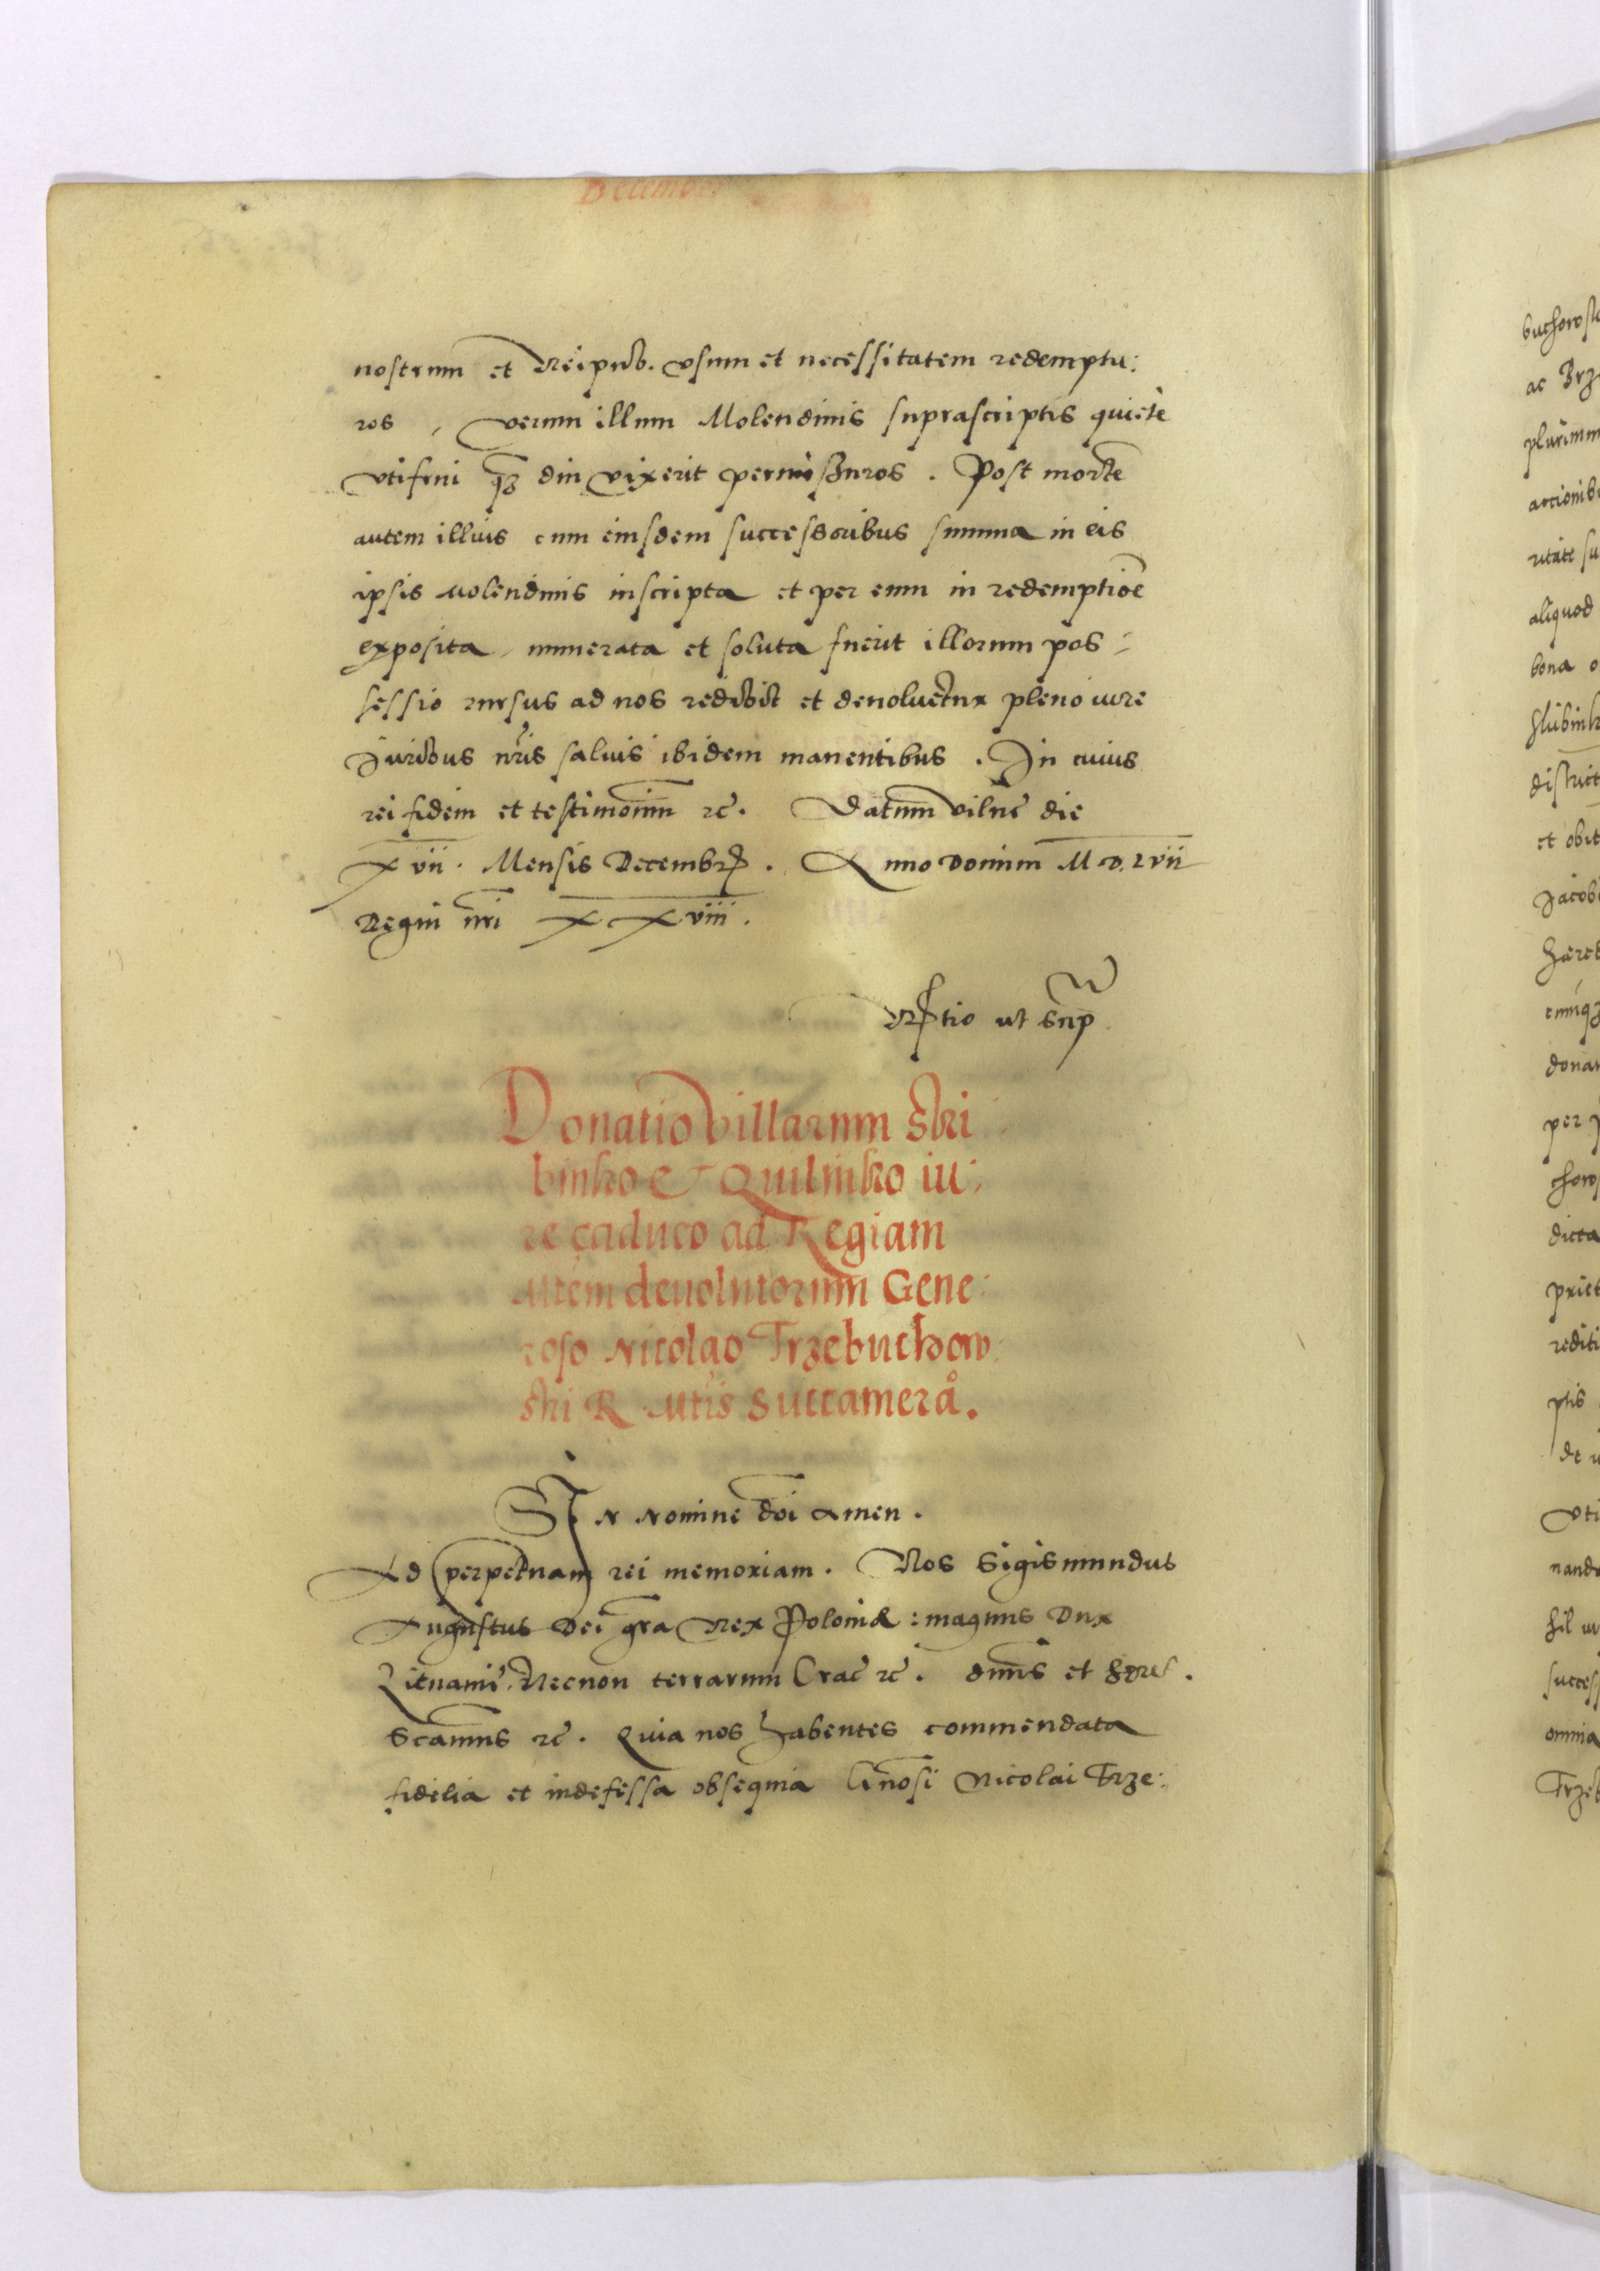 December
nostrum et Reipub. vsum et necessitatem redemptu:
ros, verum illum Molendinis suprascriptis quiete
vtifrui diu vixerit permissuros. Post mortē
autem illius cum eiusdem successoribus summa in eis
ipsis Molendinis inscripta et per eum in redemptiōe
exposita, numerata et soluta fuerit illorum pos:
sessio rursus ad nos redibit et deuoluetur pleno iure
Juribus nrīs saluis ibidem manentibus. In cuius
rei fidem et testimoniū rc̄. Datum vilnę die
xvii. Mensis Decembr. Anno Domini M D Lvii
Regni nrī xxviii.
ut Sup
Donatio villarum Skri
binko & Quilinko iu:
re caduco ad Regiam
Mtem deuolutorum Gene:
roso Nicolao Trzebuchow:
ski R Mtis Succamerå.
In Nomine dōi Amen.
Ad perpetuam rei memoriam. Nos Sigismundus
Augustus Dei grā Rex Poloniæ: magnus Dux
Lituanię. Necnon terrarum Crac̄ rc̄. dnūs et
rc̄. Quia nos habentes commendata
fidelia et indefessa obsequia Gnōsi Nicolai Trze:
buchors
ac Brz
plurimu
actionib
ritate su
aliquod
bona o
district
et obit
Jacob
hæred
donat
per
choro
dicta
priet
rediti
ptis
de
vti
nand
hil
success
omnia
Trzeb